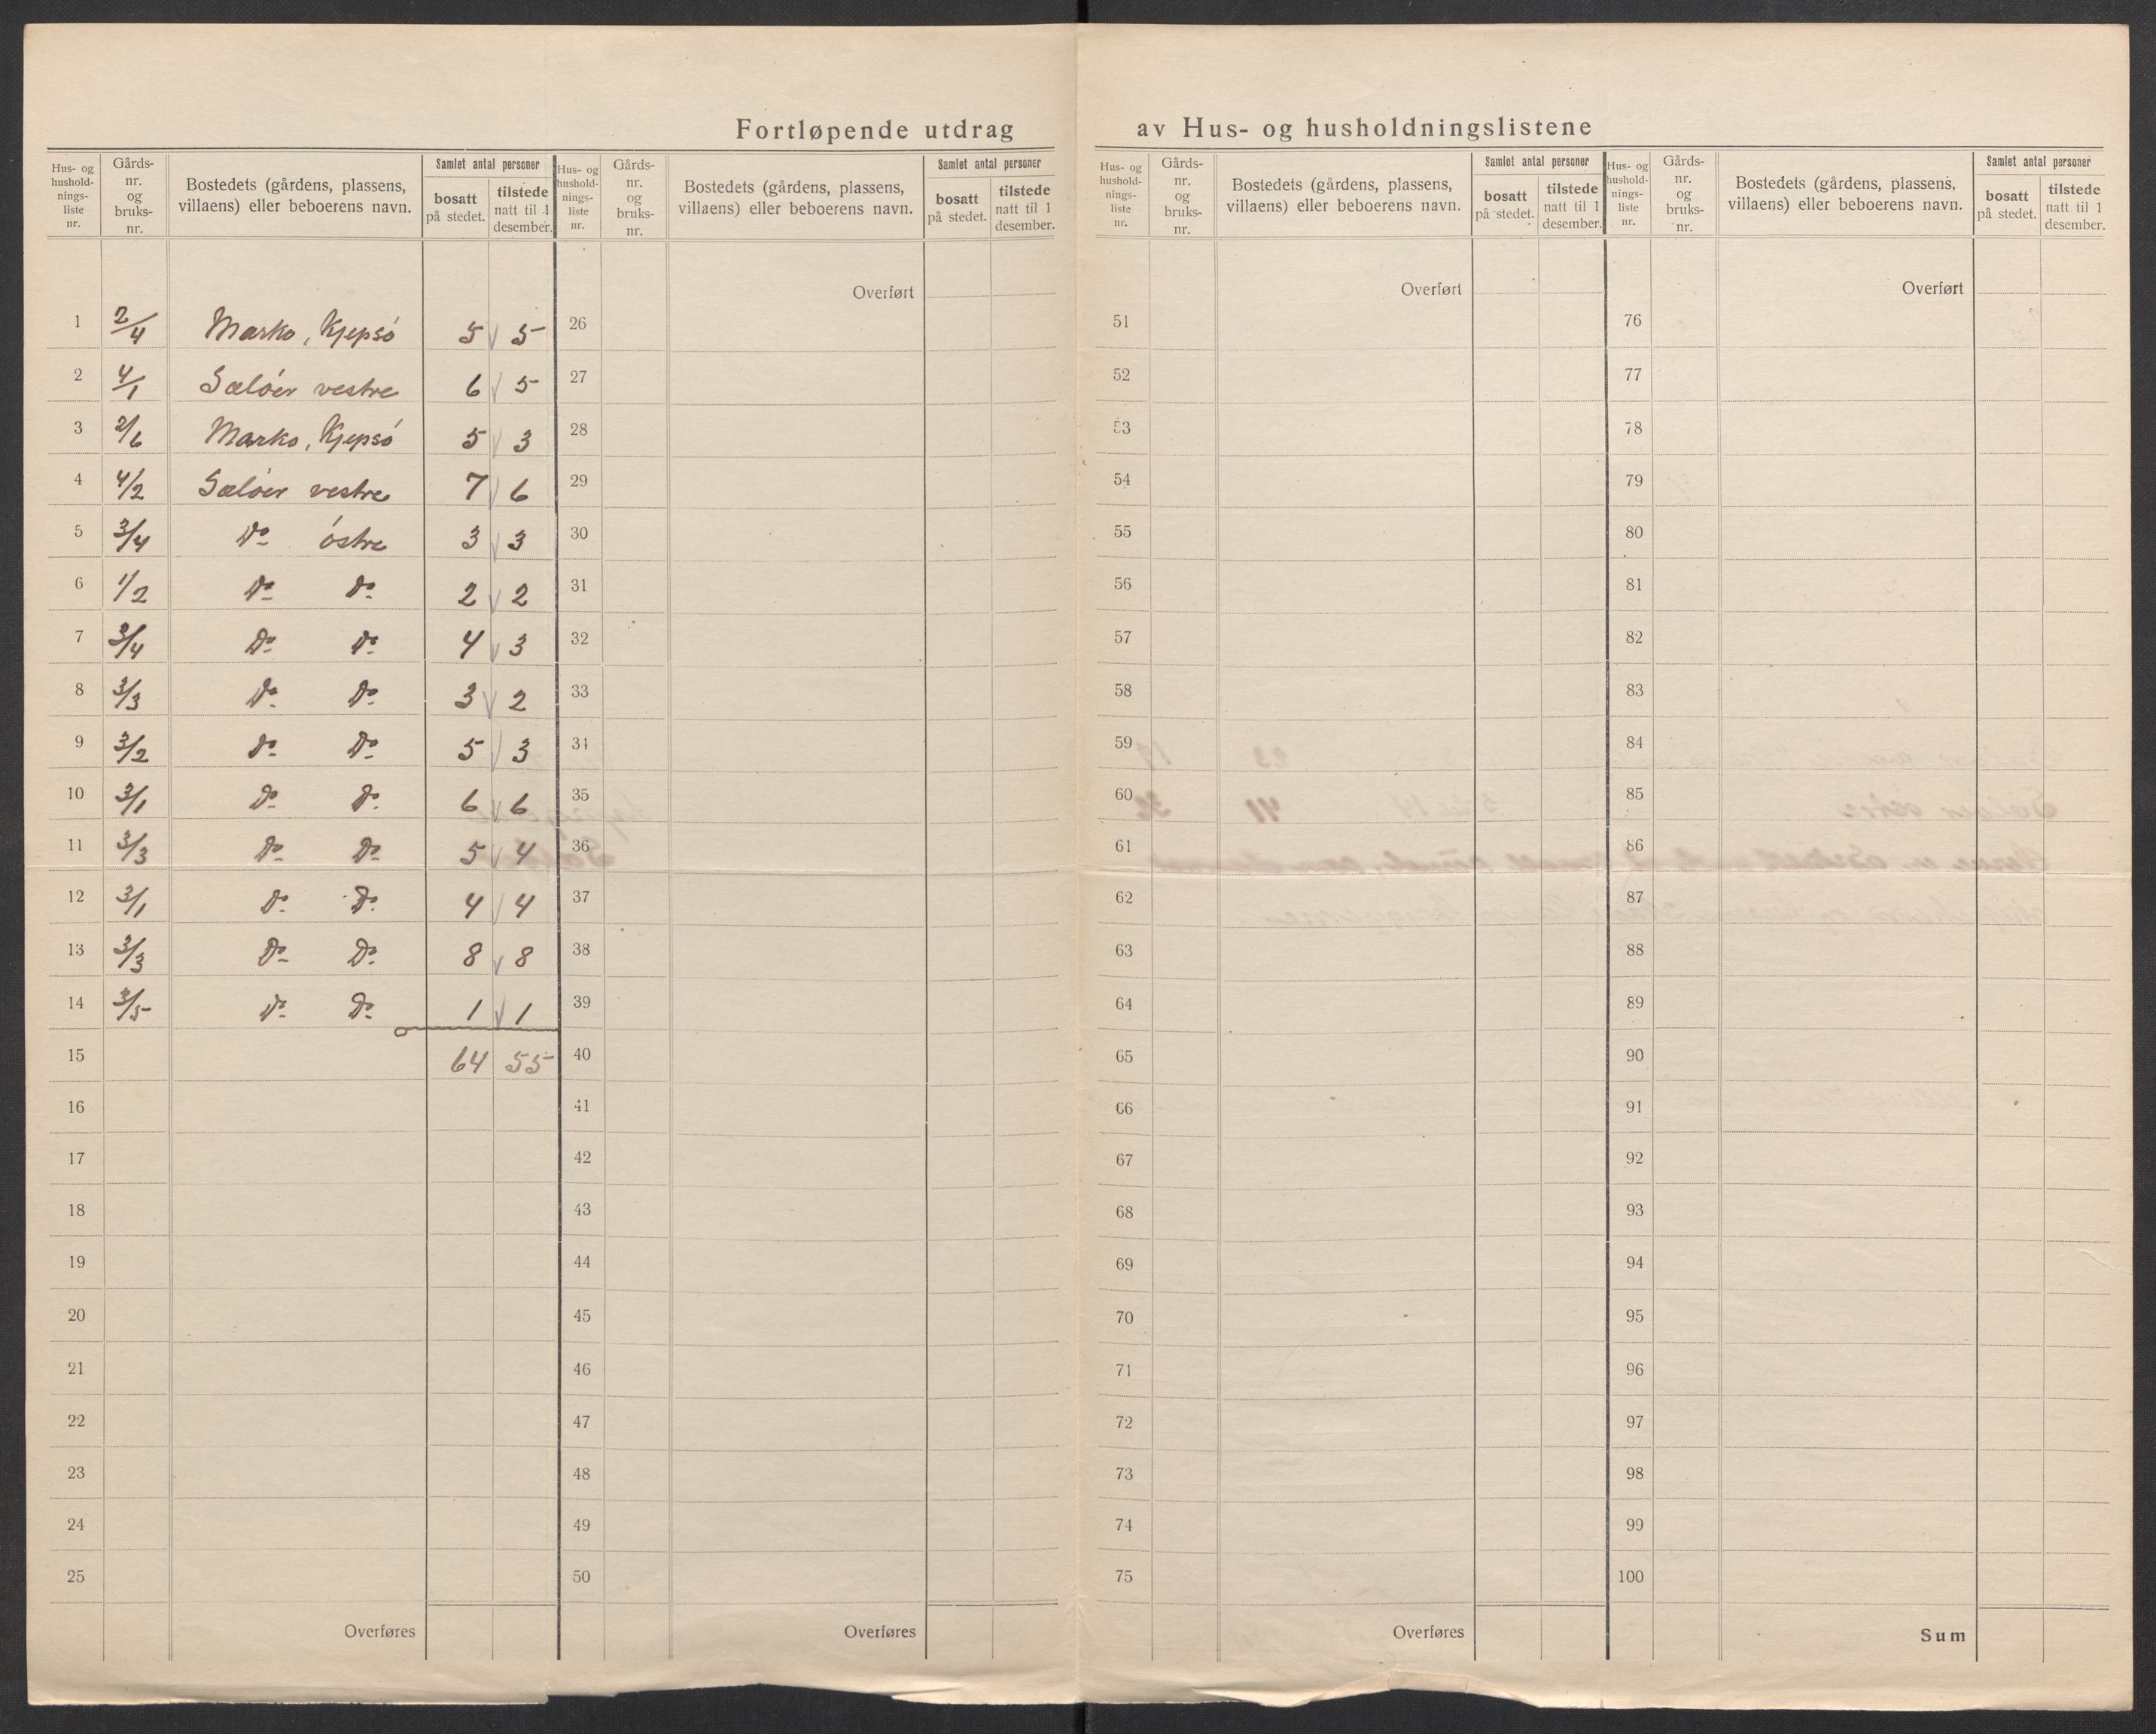 Fortløpende utdrag av Hus- og husholdningslistene
Hus- og hushold-nings-liste nr. Gårds-nr. og bruks-nr. Bostedets (gårdens, plassens, villaens) eller beboerens navn. Samlet antal personer bosatt på stedet. tilstede natt til 1 desember.
1 2/4 Marko, Kjepsö 5 5
2 4/1 Sælöer vestre 6 5
3 2/6 Marko, Kjepsö 5 3
4 4/2 Sælöer vestre 7 6
5 3/4 Do östre 3 3
6 1/2 Do Do 2 2
7 3/4 Do Do 4 3
8 3/3 Do Do 3 2
9 3/2 Do Do 5 3
10 3/1 Do Do 6 6
11 3/3 Do Do 5 4
12 3/1 Do Do 4 4
13 3/3 Do Do 8 8
14 3/5 Do Do 1 1
15 64 55
16
17
18
19
20
21
22
23
24
25
Overføres
Hus- og hushold-nings-liste nr. Gårds-nr. og bruks-nr. Bostedets (gårdens, plassens, villaens) eller beboerens navn. Samlet antal personer bosatt på stedet. tilstede natt til 1 desember.
Overført
26
27
28
29
30
31
32
33
34
35
36
37
38
39
40
41
42
43
44
45
46
47
48
49
50
Overføres
Hus- og hushold-nings-liste nr. Gårds-nr. og bruks-nr. Bostedets (gårdens, plassens, villaens) eller beboerens navn. Samlet antal personer bosatt på stedet. tilstede natt til 1 desember.
Overført
51
52
53
54
55
56
57
58
59
60
61
62
63
64
65
66
67
68
69
70
71
72
73
74
75
Overføres
Hus- og hushold-nings-liste nr. Gårds-nr. og bruks-nr. Bostedets (gårdens, plassens, villaens) eller beboerens navn. Samlet antal personer bosatt på stedet. tilstede natt til 1 desember.
Overført
76
77
78
79
80
81
82
83
84
85
86
87
88
89
90
91
92
93
94
95
96
97
98
99
100
Sum